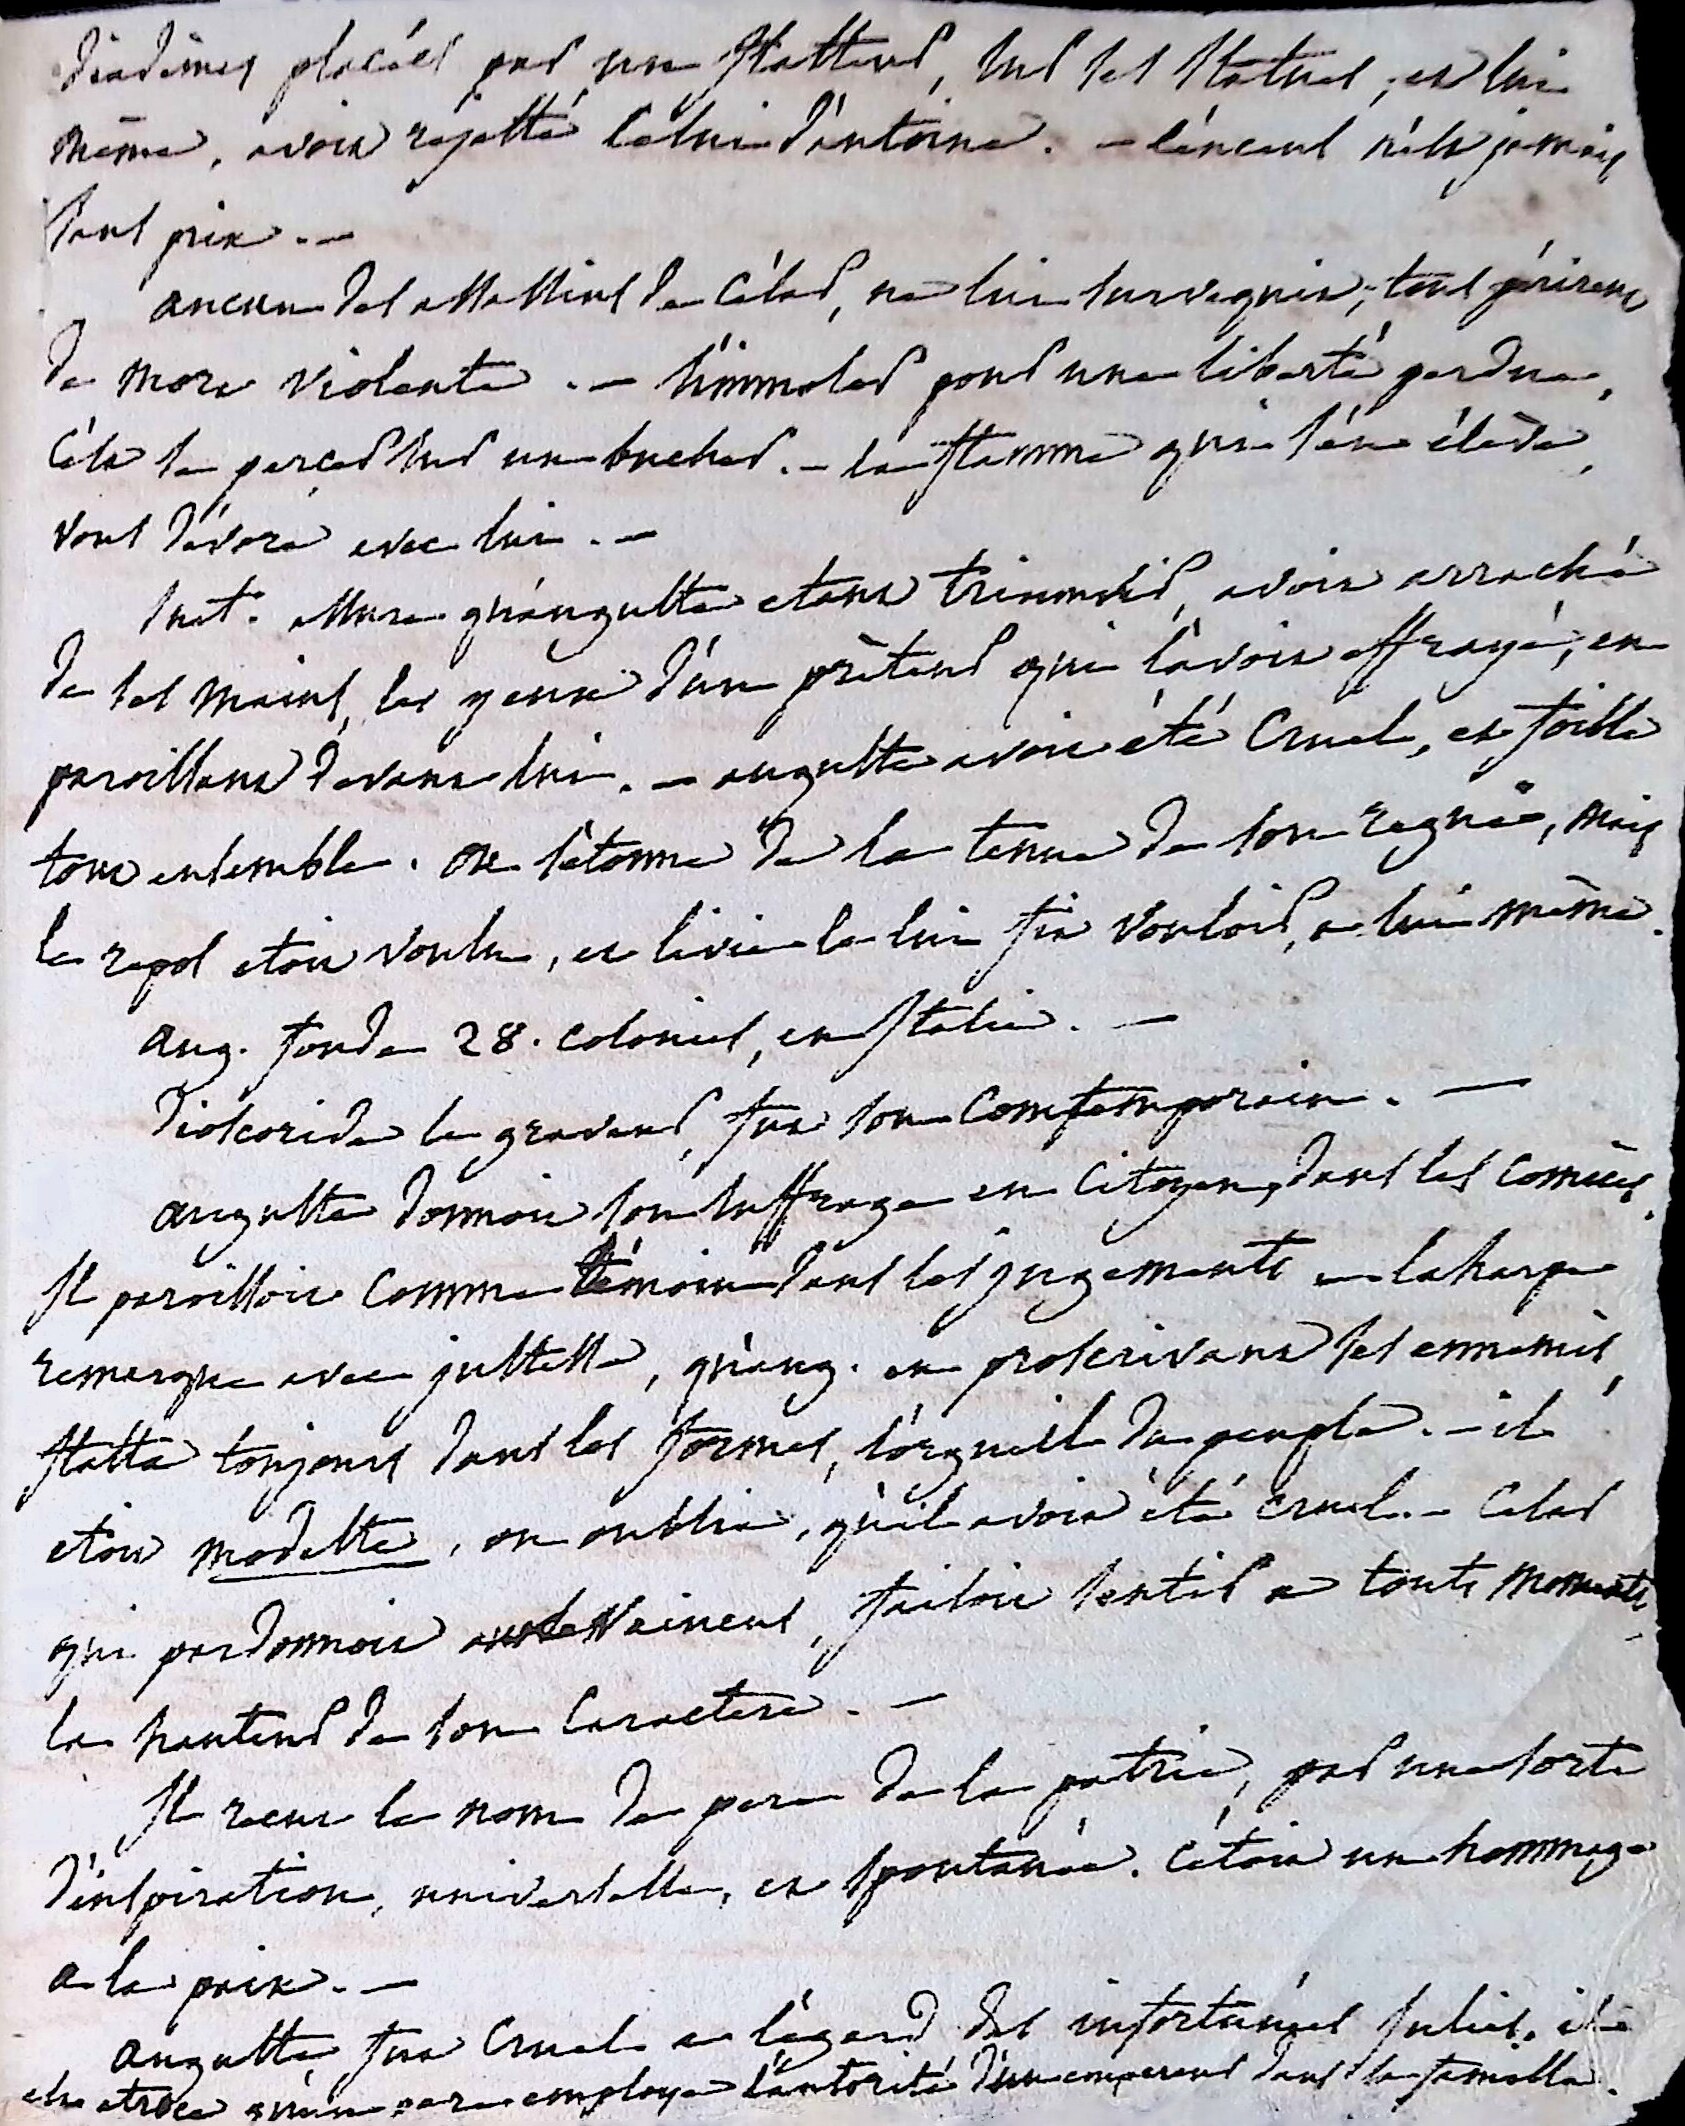 diademes placées par un flatteur, sur ses statues, et lui
même, avoit rejetté celui d'antoine. - l'encens n'est jamais
sans prix. -
aucun des assassins de César, ne lui survequit; tous périrent
de mort violente. - s'immoler pour une liberté perdue,
c'est se percer sur un bucher. - la flamme qui s'en élève,
vous dévore avec lui. -
Suet. assure qu'auguste etant triumvir, avoit arraché
de ses mains, les yeux d'un préteur qui l'avoit effrayé, en
paroissant devant lui. - auguste avoit été cruel, et foible
tout ensemble. on s'étonne de la tenue de son regne, mais
le repos etoit voulu, et livie le lui fit vouloir, a lui même.
aug. fonda 28. colonies, en Italie. -
Dioscoride le graveur, fut son contemporain. -
auguste donnoit son suffrage en citoyen, dans les comices.
Il paroissoit comme témoin dans les jugements - laharpe
remarque avec justesse, qu'aug. en proscrivant ses ennemis,
flatta toujours dans les formes, l'orgueil du peuple. - il
etoit modeste, on oublia, qu'il avoit été cruel. - César
qui pardonnoit aux vaincus, faisoit sentir a touts moments,
la hauteur de son caractere. -
Il recut le nom de pere de la patrie, par une sorte
d'inspiration, universelle, et spontanée. c'étoit un hommage
a la paix. -
auguste, fut cruel a l'égard des infortunées Julies. il
est atroce qu'un pere employe l'autorité d'un empereur dans sa famille.